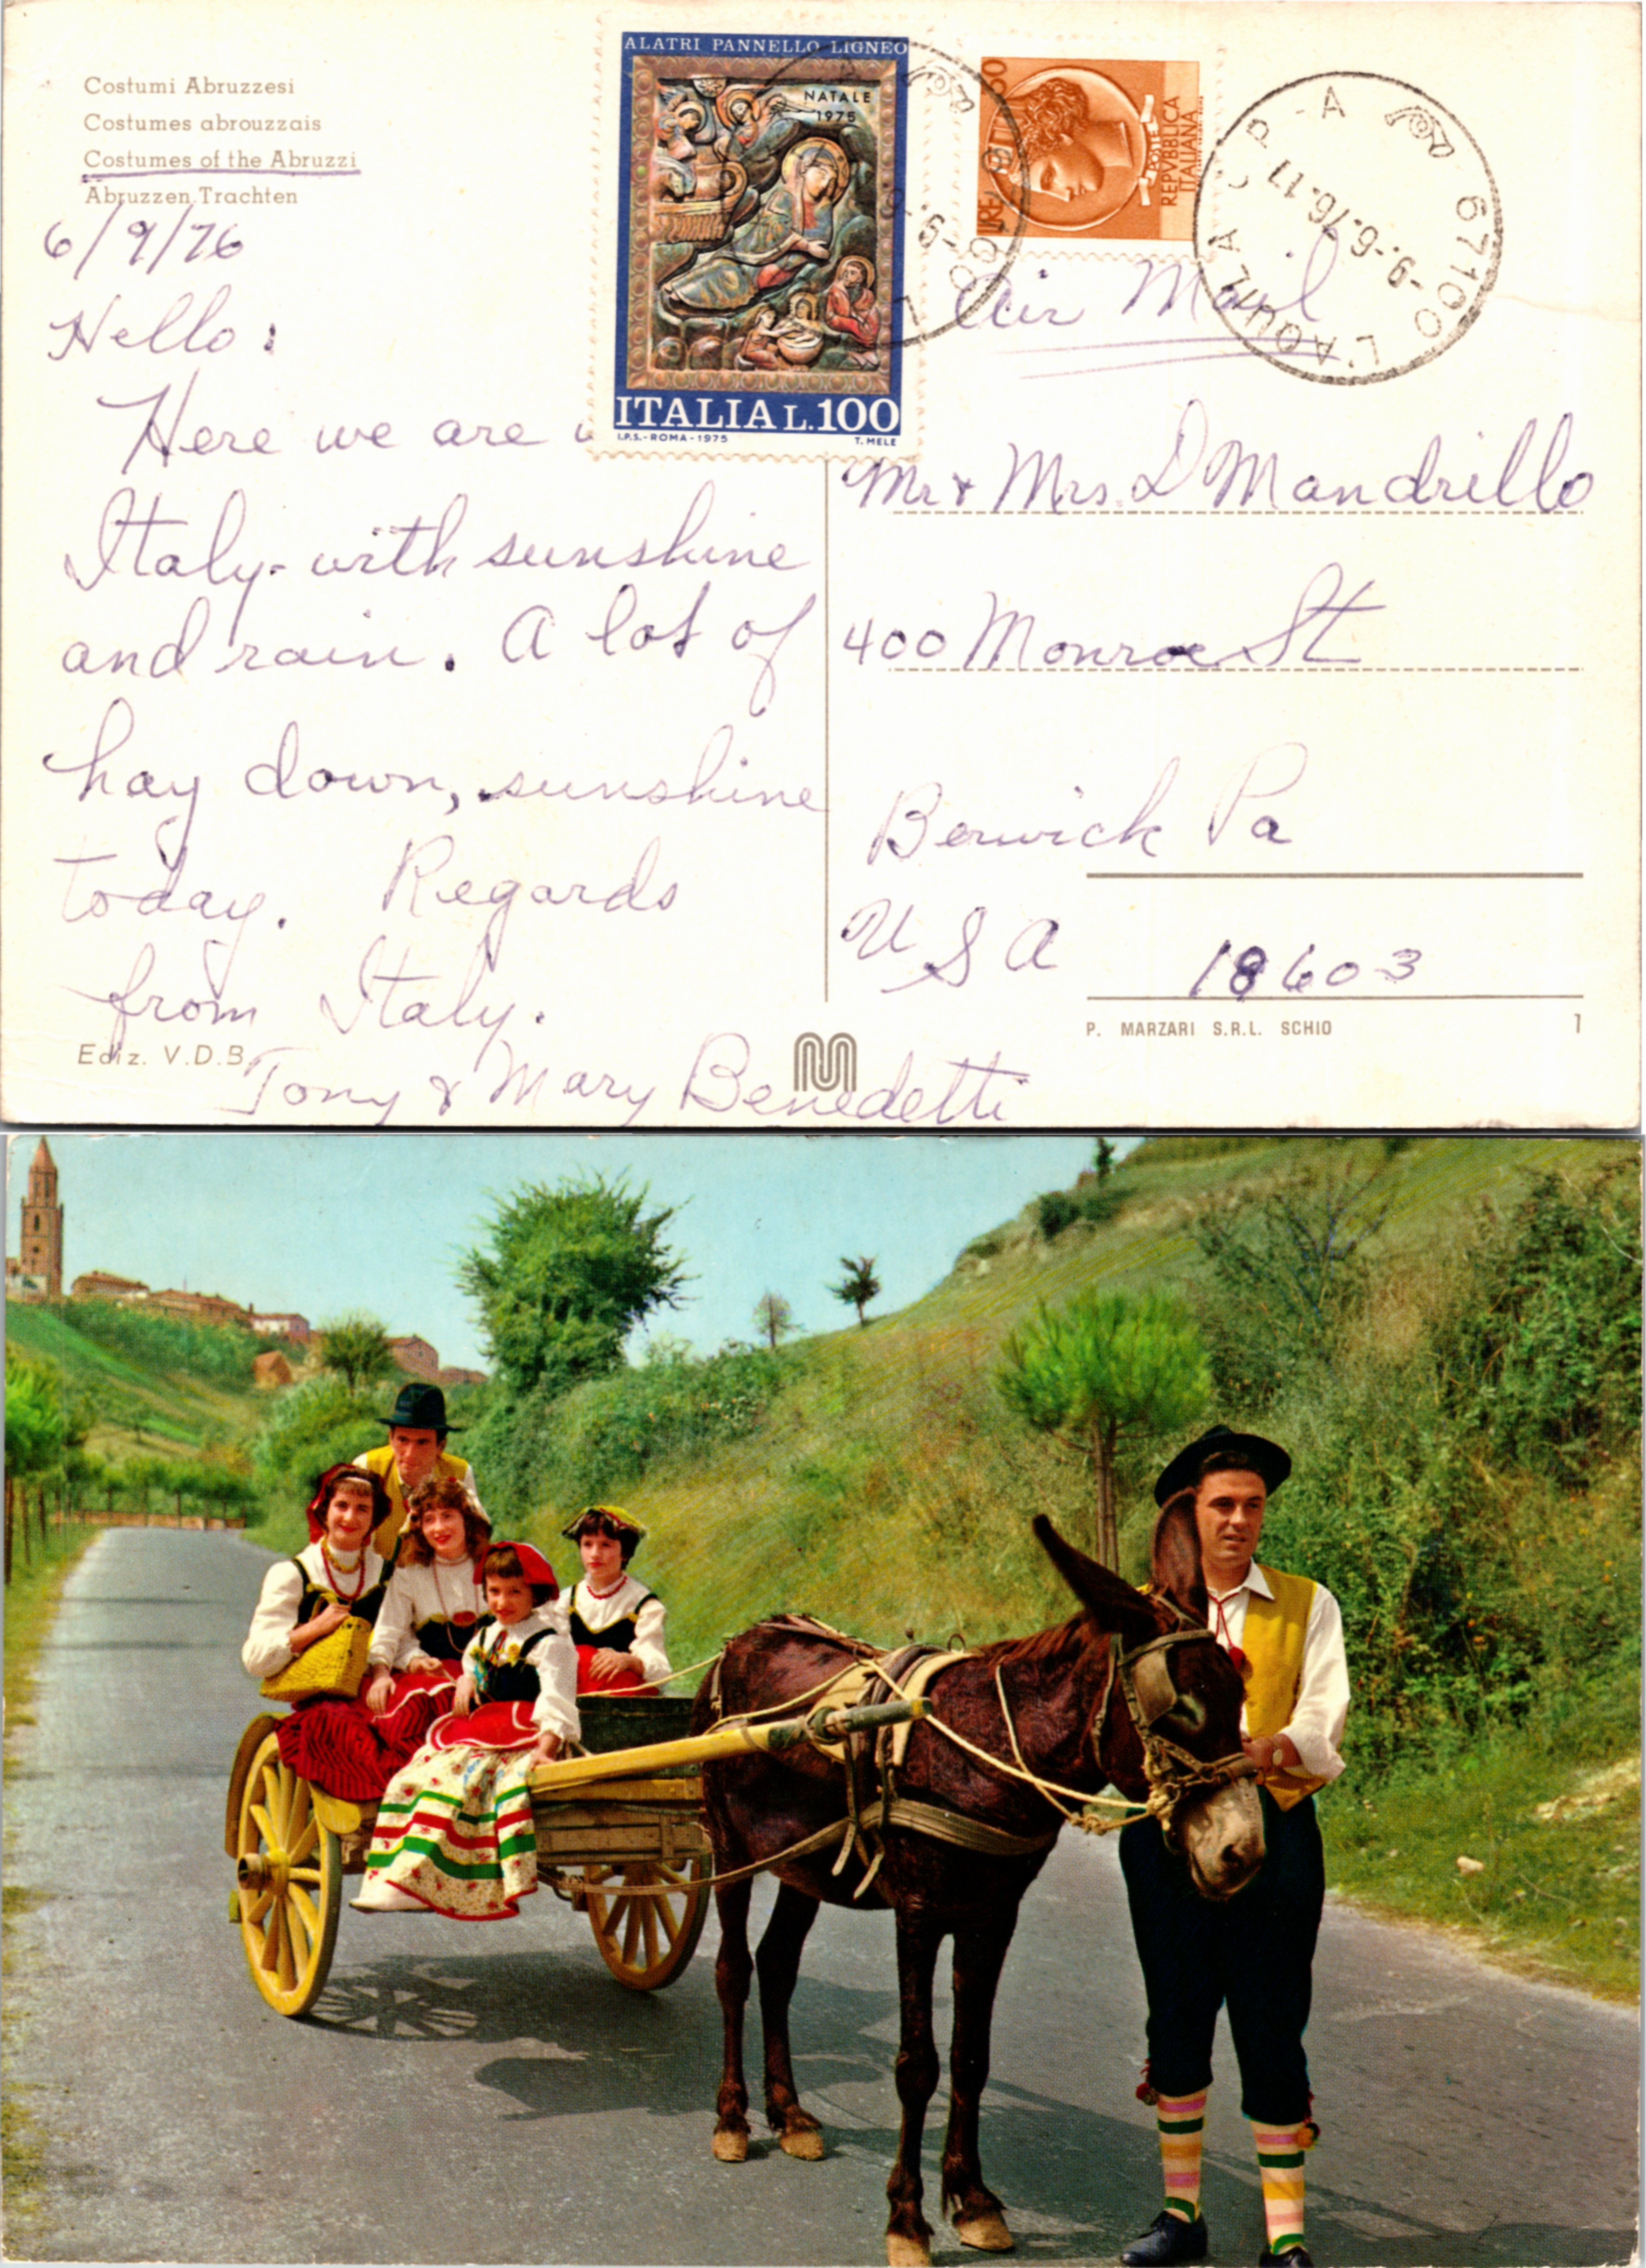 Costumi Abruzzesi
Costumes abrouzzais
Costumes of the Abruzzi
Abruzzen Trachten
6/9/76
Hello:
Here we are
Italy - with sunshine
and rain. A lot of
hay down, sunshine
today. Regards
from Italy.
Tony & Mary Benedetti
Ediz. V.D.B.
ALATRI PANNELLO LIGNEO
NATALE
1975
ITALIA L.100
I.P.S.-ROMA-1975 T. MELE
LIRE
POSTE
REPVBBLICA
ITALIANA
67100 L'AQUILA C P - A
-9.-6.-76.-17
Air Mail
Mr & Mrs. D Mandrillo
400 Monroe St
Berwick Pa
USA 18603
P. MARZARI S.R.L. SCHIO 1